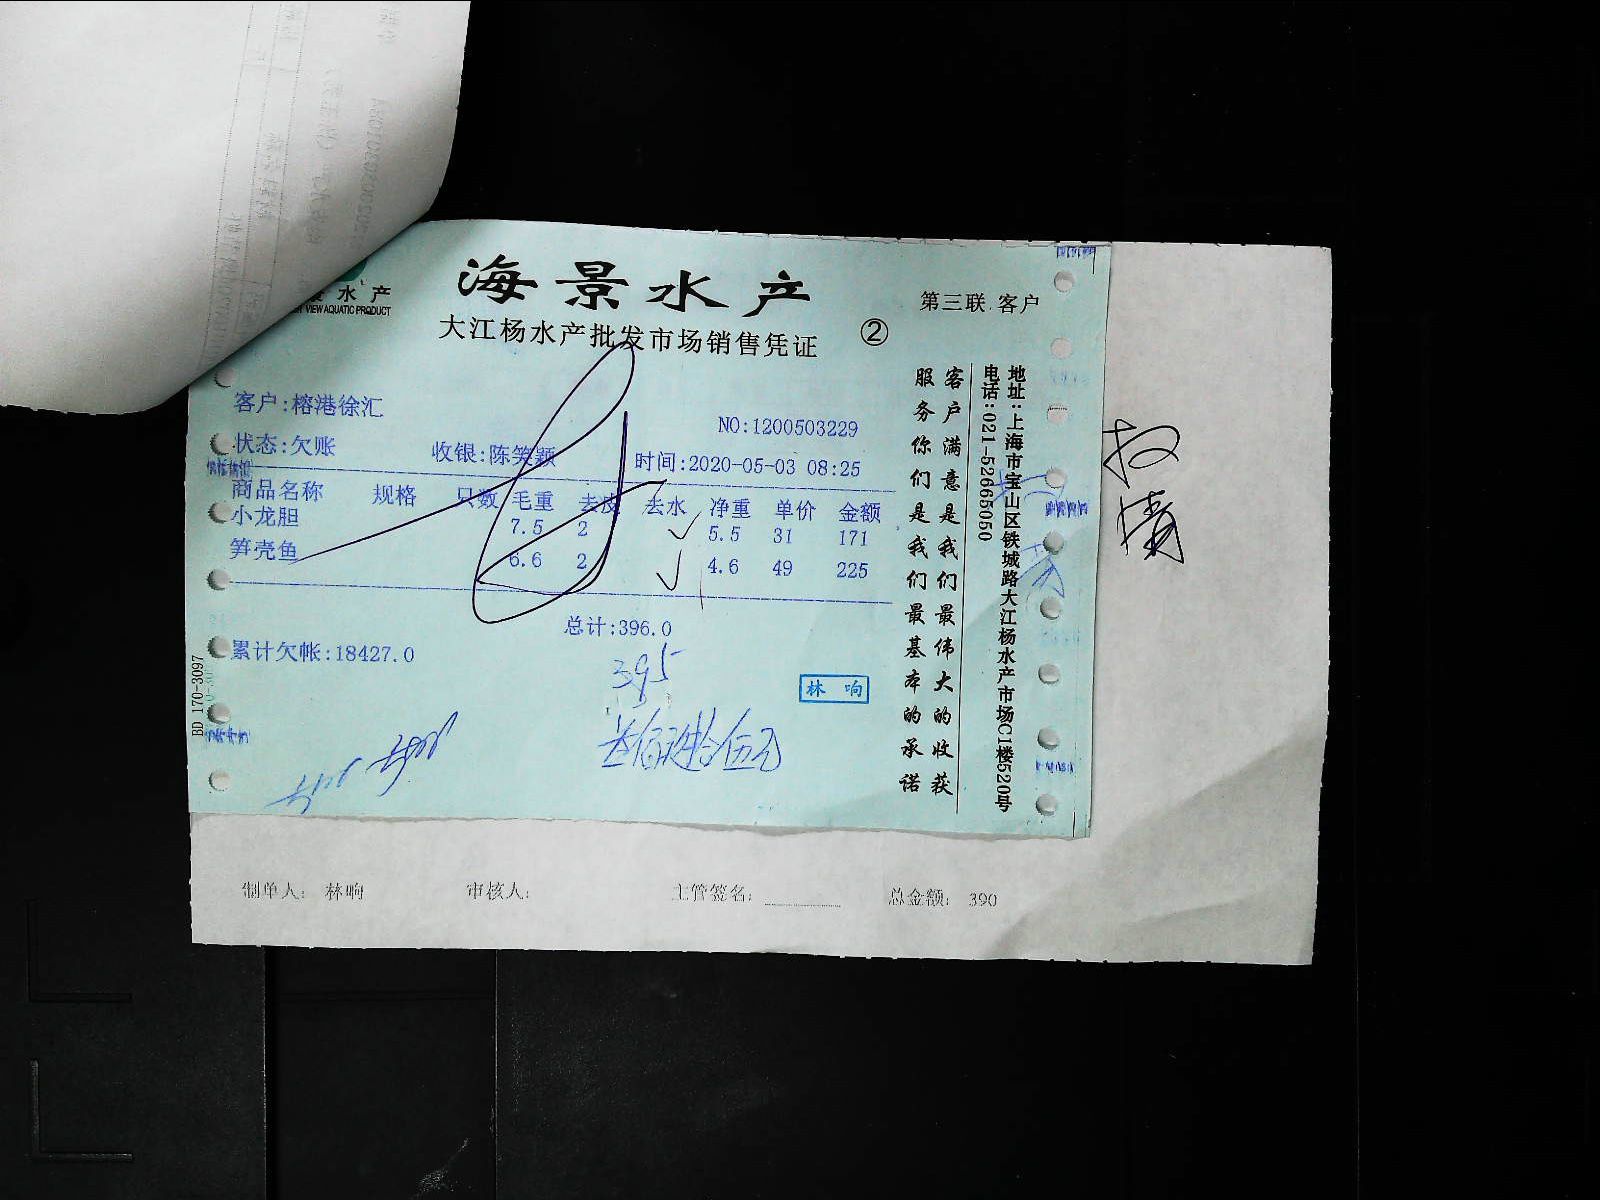 水产
VIEW AQUATIC PRODUCT
海景水产
大江杨水产批发市场销售凭证
②
第三联 客户
客户:榕港徐汇
NO:1200503229
状态:欠账 收银:陈笑颖 时间:2020-05-03 08:25
商品名称 规格 只数 毛重 去皮 去水 净重 单价 金额
小龙胆 7.5 2 5.5 31 171
笋壳鱼 6.6 2 4.6 49 225
总计:396.0
累计欠帐:18427.0
395
叁佰玖拾伍元
林响
BD 170-3097
客户满意是我们最伟大的收获
服务你们是我们最基本的承诺
地址:上海市宝山区铁城路大江杨水产市场C1楼520号
电话:021-52665050
制单人: 林响 审核人: 主管签名: 总金额: 390